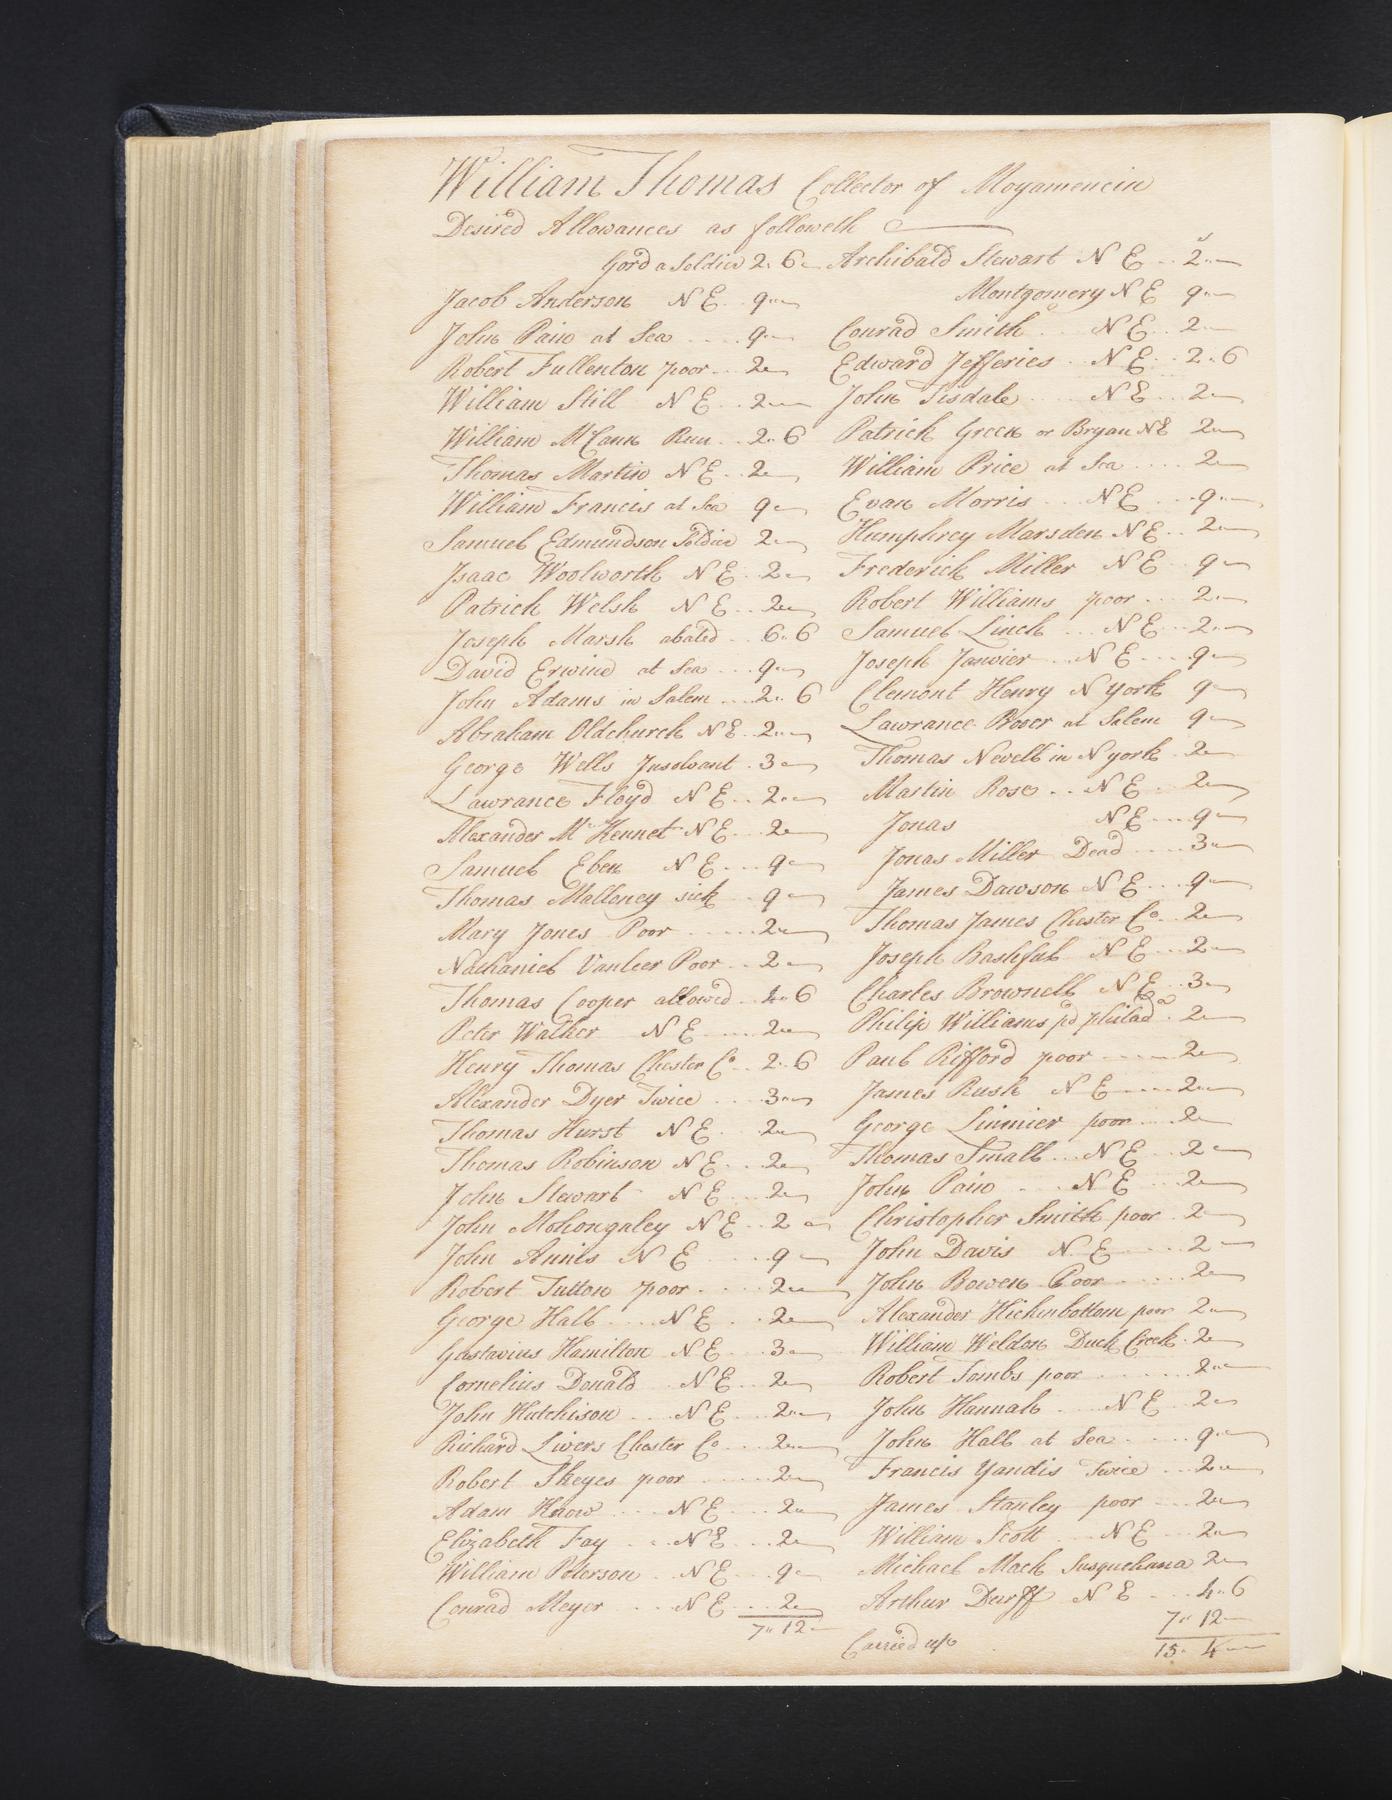 William Thomas Collector of Moyamencin
Desired Allowances as followeth
Gord a Soldier 2.. 6
Jacob Anderson N E .. 9..
John Pain at Sea .... 9..
Robert Fullenton poor .. 2..
William Still N E .. 2..
William McCann Run .. 2.. 6
Thomas Martin N E .. 2..
William Francis at Sea 9..
Samuel Edmundson Soldier 2..
Isaac Woolworth N E .. 2..
Patrick Welsh N E .. 2..
Joseph Marsh abated .. 6.. 6
David Erwine at Sea ... 9..
John Adams in Salem .... 2.. 6
Abraham Oldchurch N E .. 2..
George Wells Insolvant . 3..
Lawrance Floyd N E .. 2..
Alexander McKennet N E .. 2..
Samuel Eben N E .... 9..
Thomas Malloney sick .. 9..
Mary Jones Poor ...... 2..
Nathaniel Vanleer Poor .. 2..
Thomas Cooper allowed .. 4.. 6
Peter Walker N E ..... 2..
Henry Thomas Chester Co .. 2.. 6
Alexander Dyer Twice .... 3..
Thomas Hurst N E .. 2..
Thomas Robinson N E ... 2..
John Stewart N E .... 2..
John Mohongaley N E .. 2..
John Annis N E .... 9..
Robert Tutton poor ..... 2..
George Hall .... N E .. 2..
Gustavius Hamilton N E ... 3..
Cornelius Donald N E .. 2..
John Hutchison .... N E ... 2..
Richard Livers Chester Co .... 2..
Robert Skeyes poor ...... 2..
Adam .... N E ... 2..
Elizabeth Fay .... N E ... 2..
William Peterson .. N E ... 9..
Conrad Meyer .... N E ... 2..
7.. 12..
Archibald Stewart N E .. 2..
Montgomery N E 9..
Conrad Smith .... N E .. 2..
Edward Jefferies .. N E .. 2.. 6
John Tisdale .... N E ... 2..
Patrick Green or Bryan N E 2..
William Price at Sea .... 2..
Evan Morris .... N E ... 9..
Humphrey Marsden N E .. 2..
Frederick Miller N E .. 9..
Robert Williams poor ... 2..
Samuel Linch ... N E ... 2..
Joseph Janvier .. N E .... 9..
Clemont Henry N york 9..
Lawrance Booer at Salem 9..
Thomas Nevell in N york .. 2..
Martin Rose .. N E .. 2..
Jonas N E .... 9..
Jonas Miller Dead ..... 3..
James Dawson N E ... 9..
Thomas James Chester Co .. 2..
Joseph Bashful N E ... 2..
Charles Brownell N E .. 3..
Philip Williams pd philada . 2..
Paul Rifford poor ...... 2..
James Rush N E ..... 2..
George Linmier poor .... 2..
Thomas Small ... N E ... 2..
John Pain .... N E ... 2..
Christopher Smith poor .. 2..
John Davis N E ..... 2..
John Bowen Poor ...... 2..
Alexander Hickinbottom poor 2..
William Weldon Duck Creek . 2..
Robert Tombs poor ....... 2..
John Hannah .... N E ... 2..
John Hall at Sea ..... 9..
Francis Yandis Twice ... 2..
James Stanley poor ... 2..
William Scott ... N E ... 2..
Michael Mack Susquehana 2..
Arthur Durff N E ... 4.. 6
7.. 12..
Carried up 15.. 4..